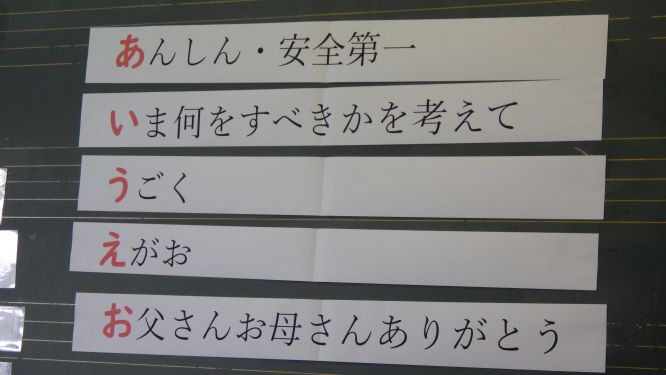 あんしん・安全第一
いま何をすべきかを考えて
うごく
えがお
お父さんお母さんありがとう